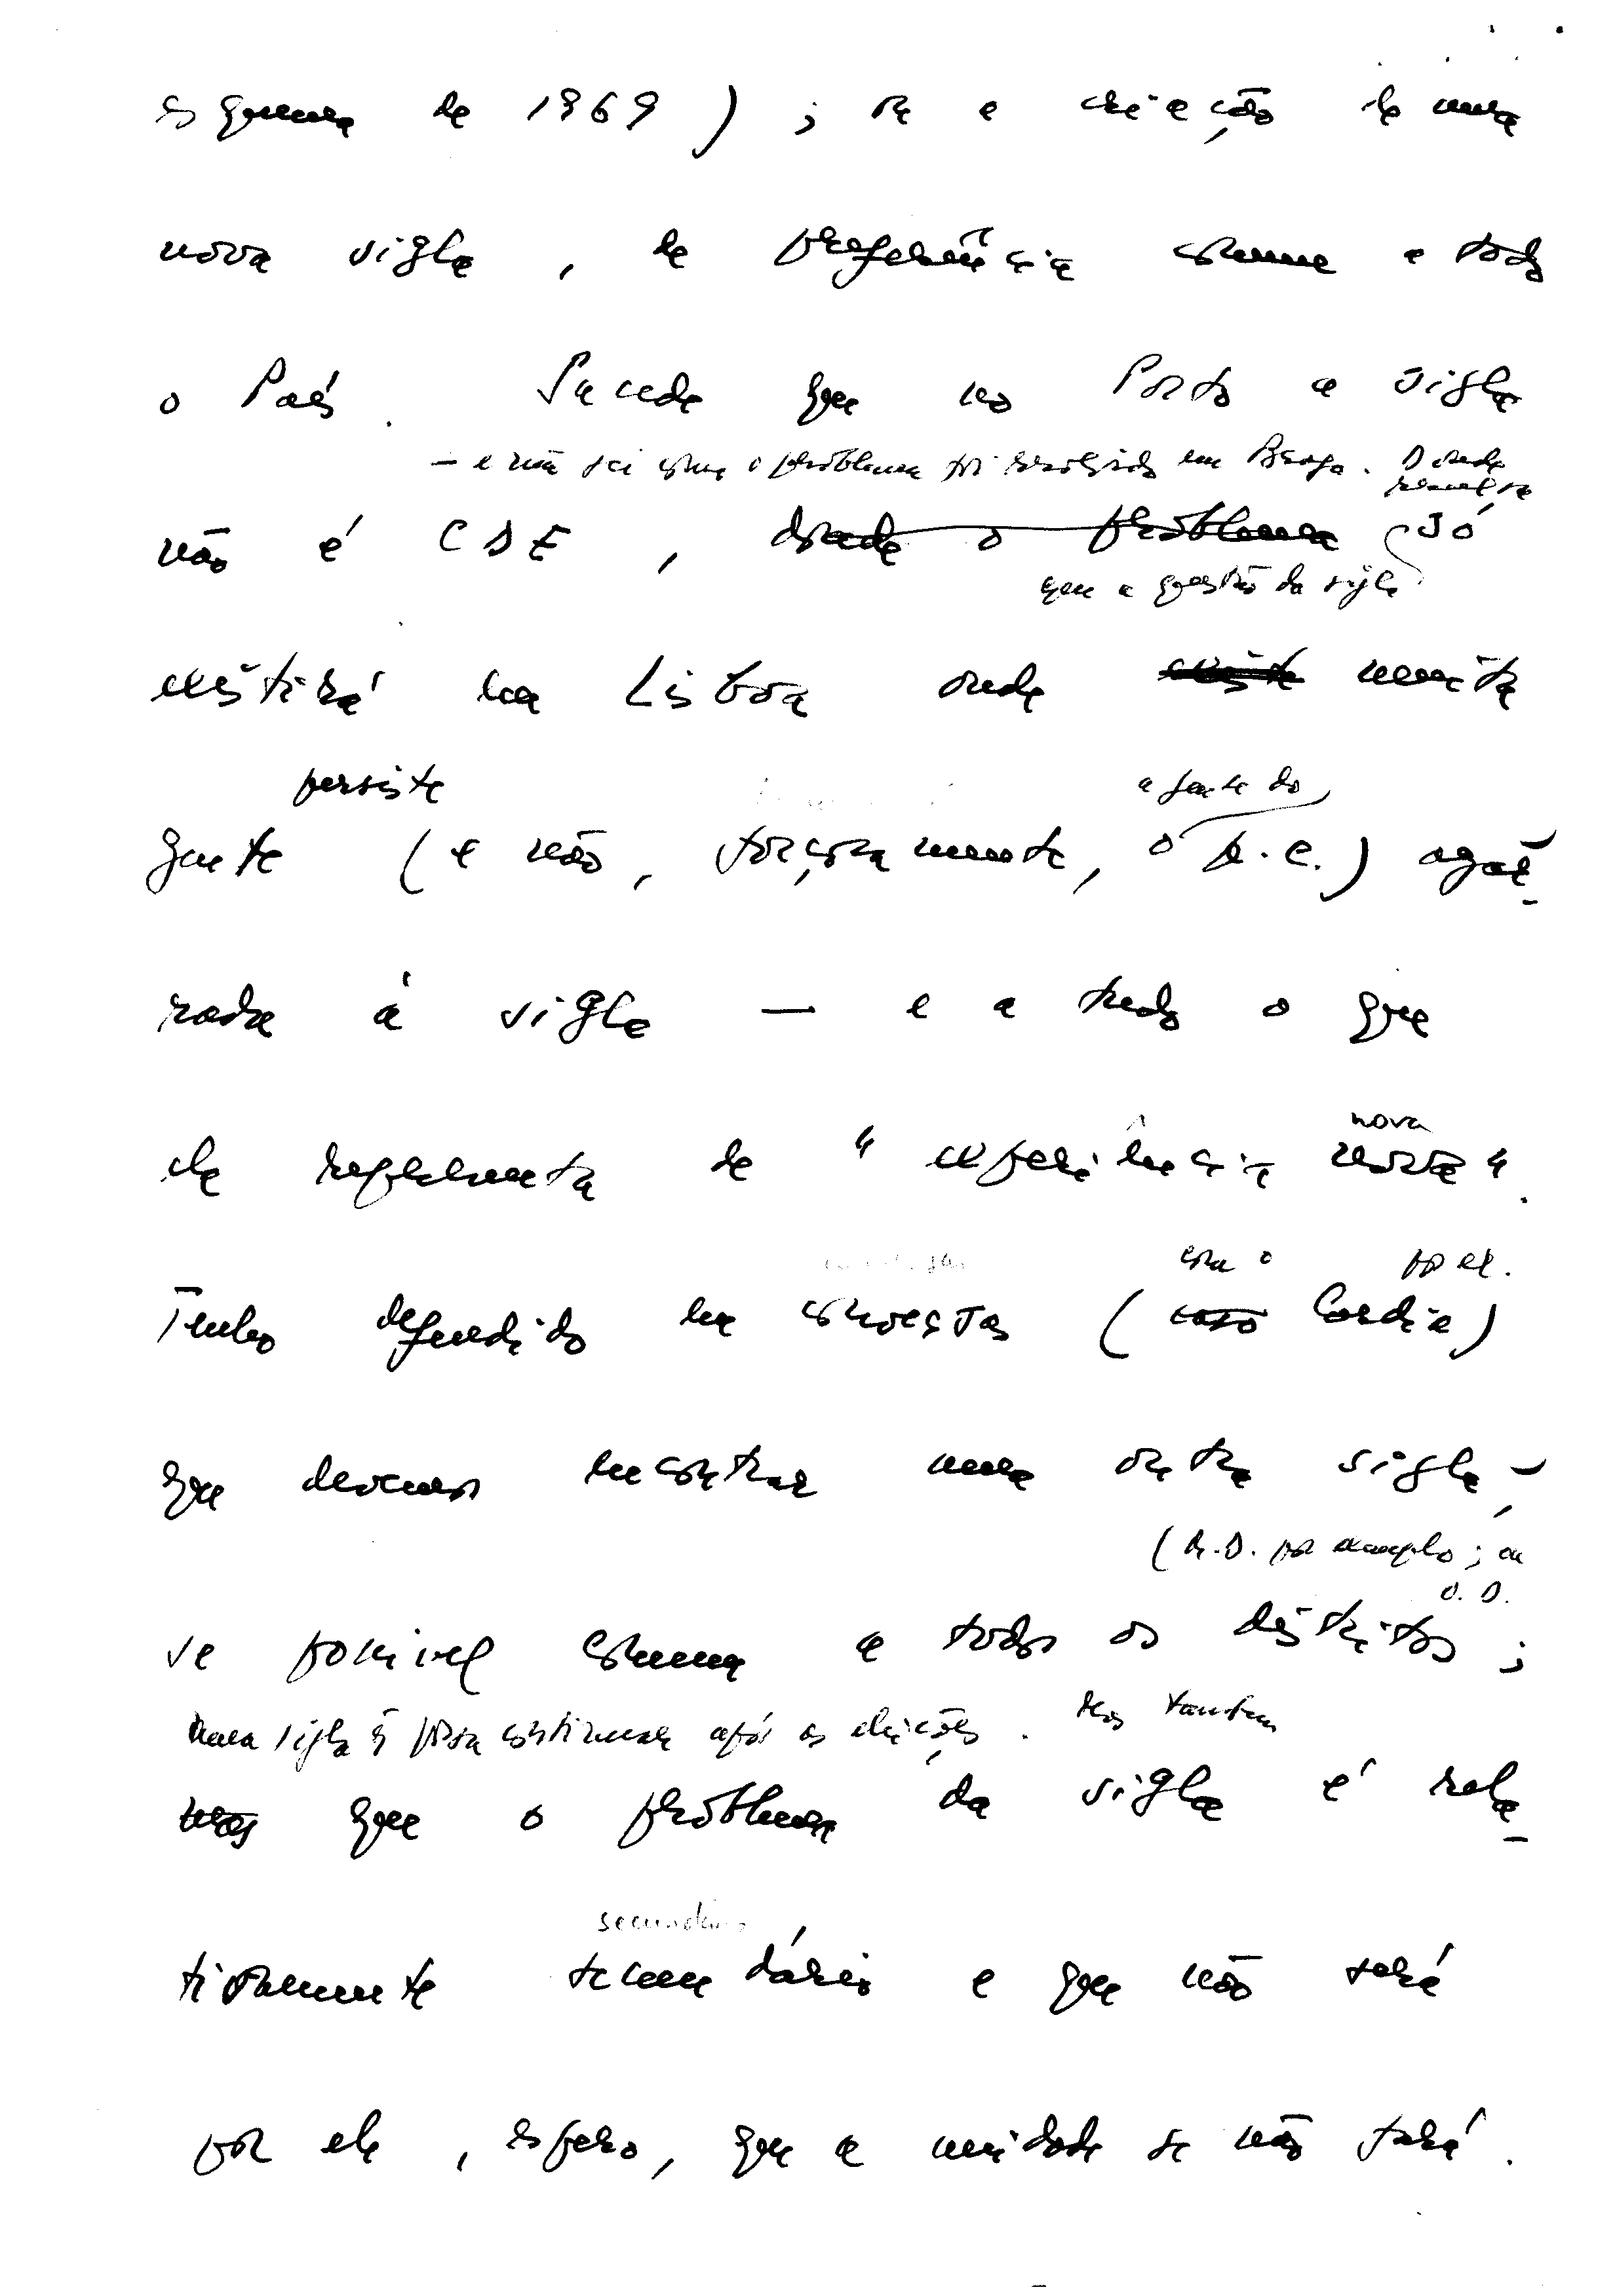 esquema de 1969); ou a criação de uma
nova sigla, de preferência comum a todo
o País. Sucede que no Porto a sigla
— e não sei como o problema foi resolvido em Braga. Donde
resulta
não é CDE, donde o problema só
que a questão da sigla
existirá em Lisboa onde existe muita
persiste a gente do
gente (e não, forçosamente, o p.c.) agar-
rada à sigla — e a tudo o que
ela representa de "experiência nova".
nova
com o por ex.
Tenho defendido em conversas (caso Cardia)
que devemos encontrar uma outra sigla,
(A.D. por exemplo; ou
O.D.
se possível comum a todos os distritos;
uma sigla q possa continuar após as eleições. Mas também
mas que o problema da sigla é rela-
secundário
tivamente secundário e que não será
por ela, espero, que a unidade se não fará.